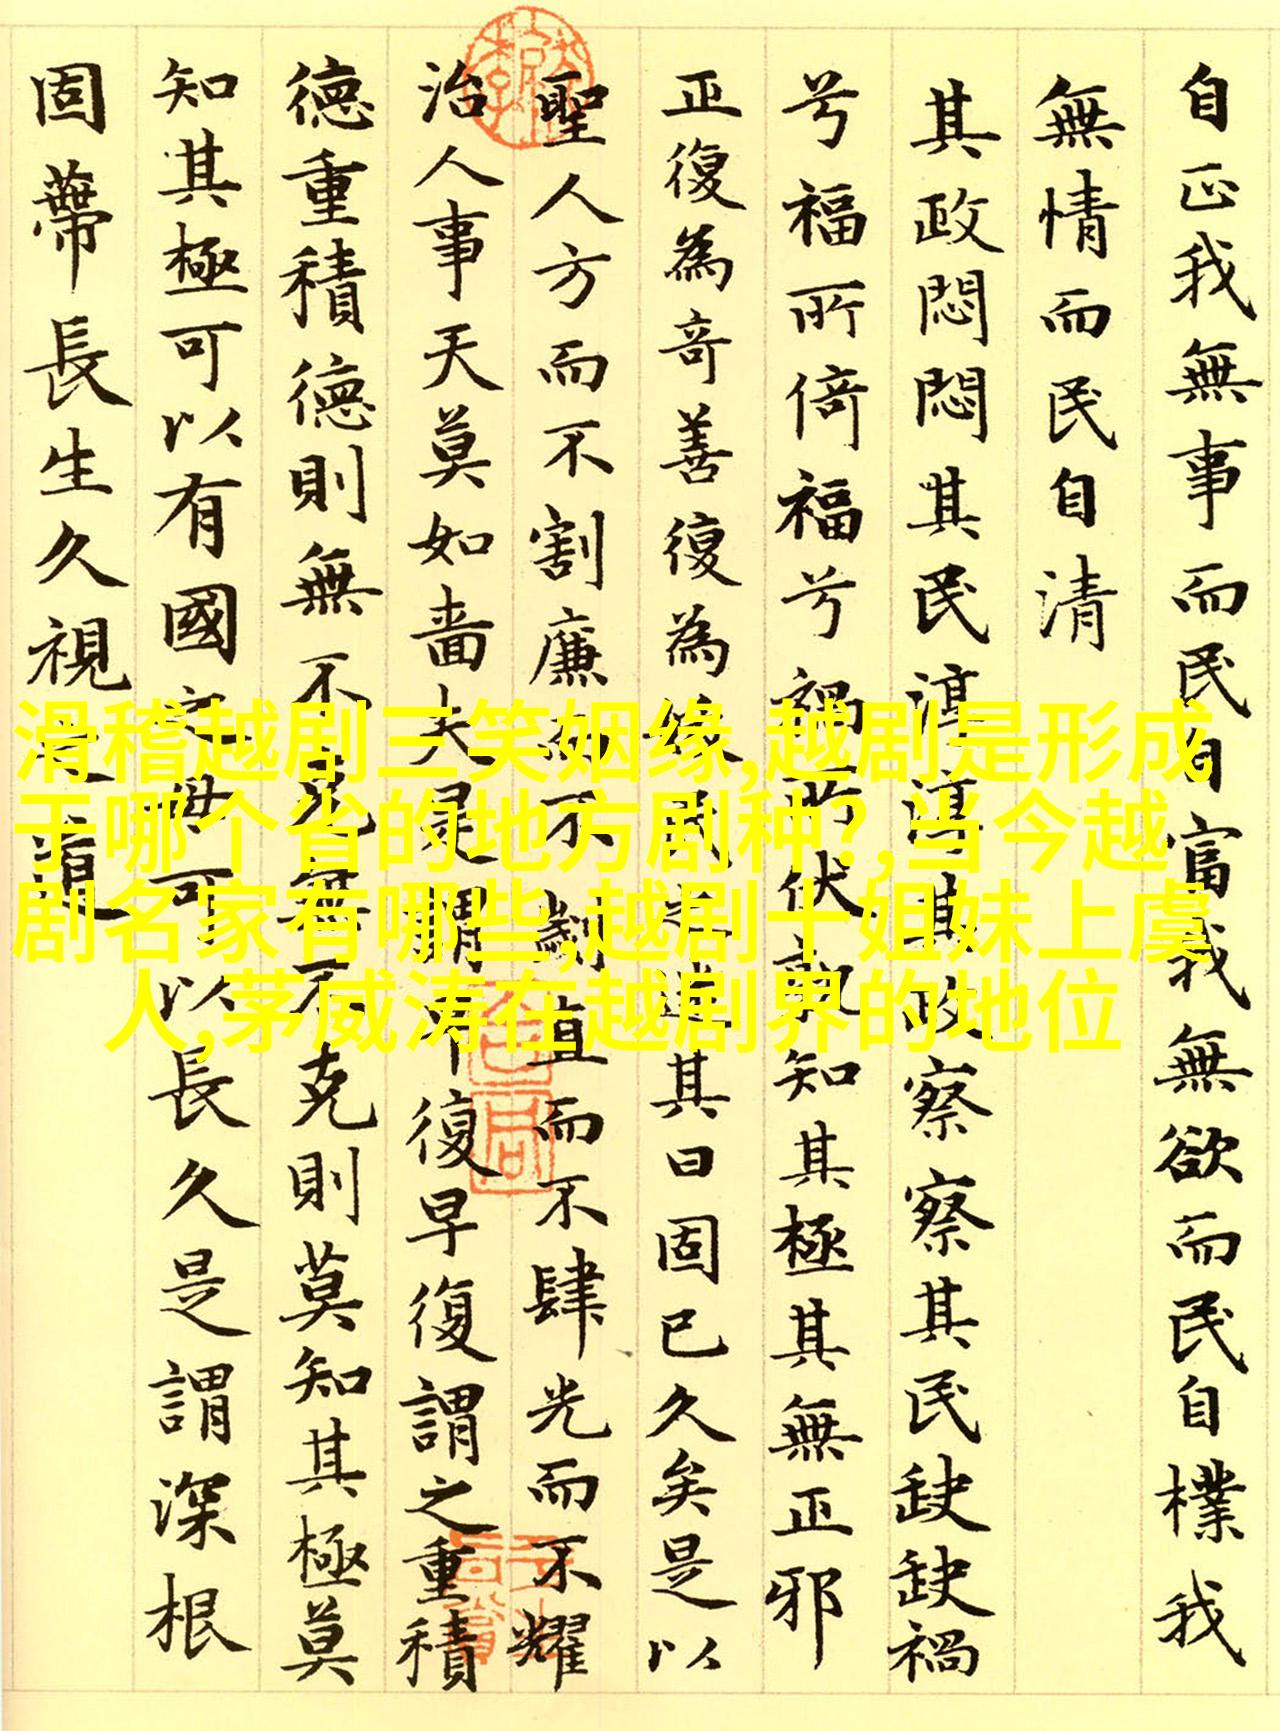 自正我無事而民自富我無欲而民自樸我
無情而民自清
其政悶悶其民淳淳其政察察其民缺缺禍
兮福所倚福兮禍所伏孰知其極其無正邪
正復為奇善復為民之迷其日固已久矣是以
聖人方而不割廉而不劌直而不肆光而不耀
治人事天莫如嗇夫是謂早復早復謂之重積
德重積德則無不克無不克則莫知其極莫
知其極可以有國母可以長久是謂深根
固蔕長生久視之道
滑稽越剧三笑姻缘,越剧是形成
于哪个省的地方剧种?,当今越
剧名家有哪些,越剧十姐妹上虞
人,茅威涛在越剧界的地位